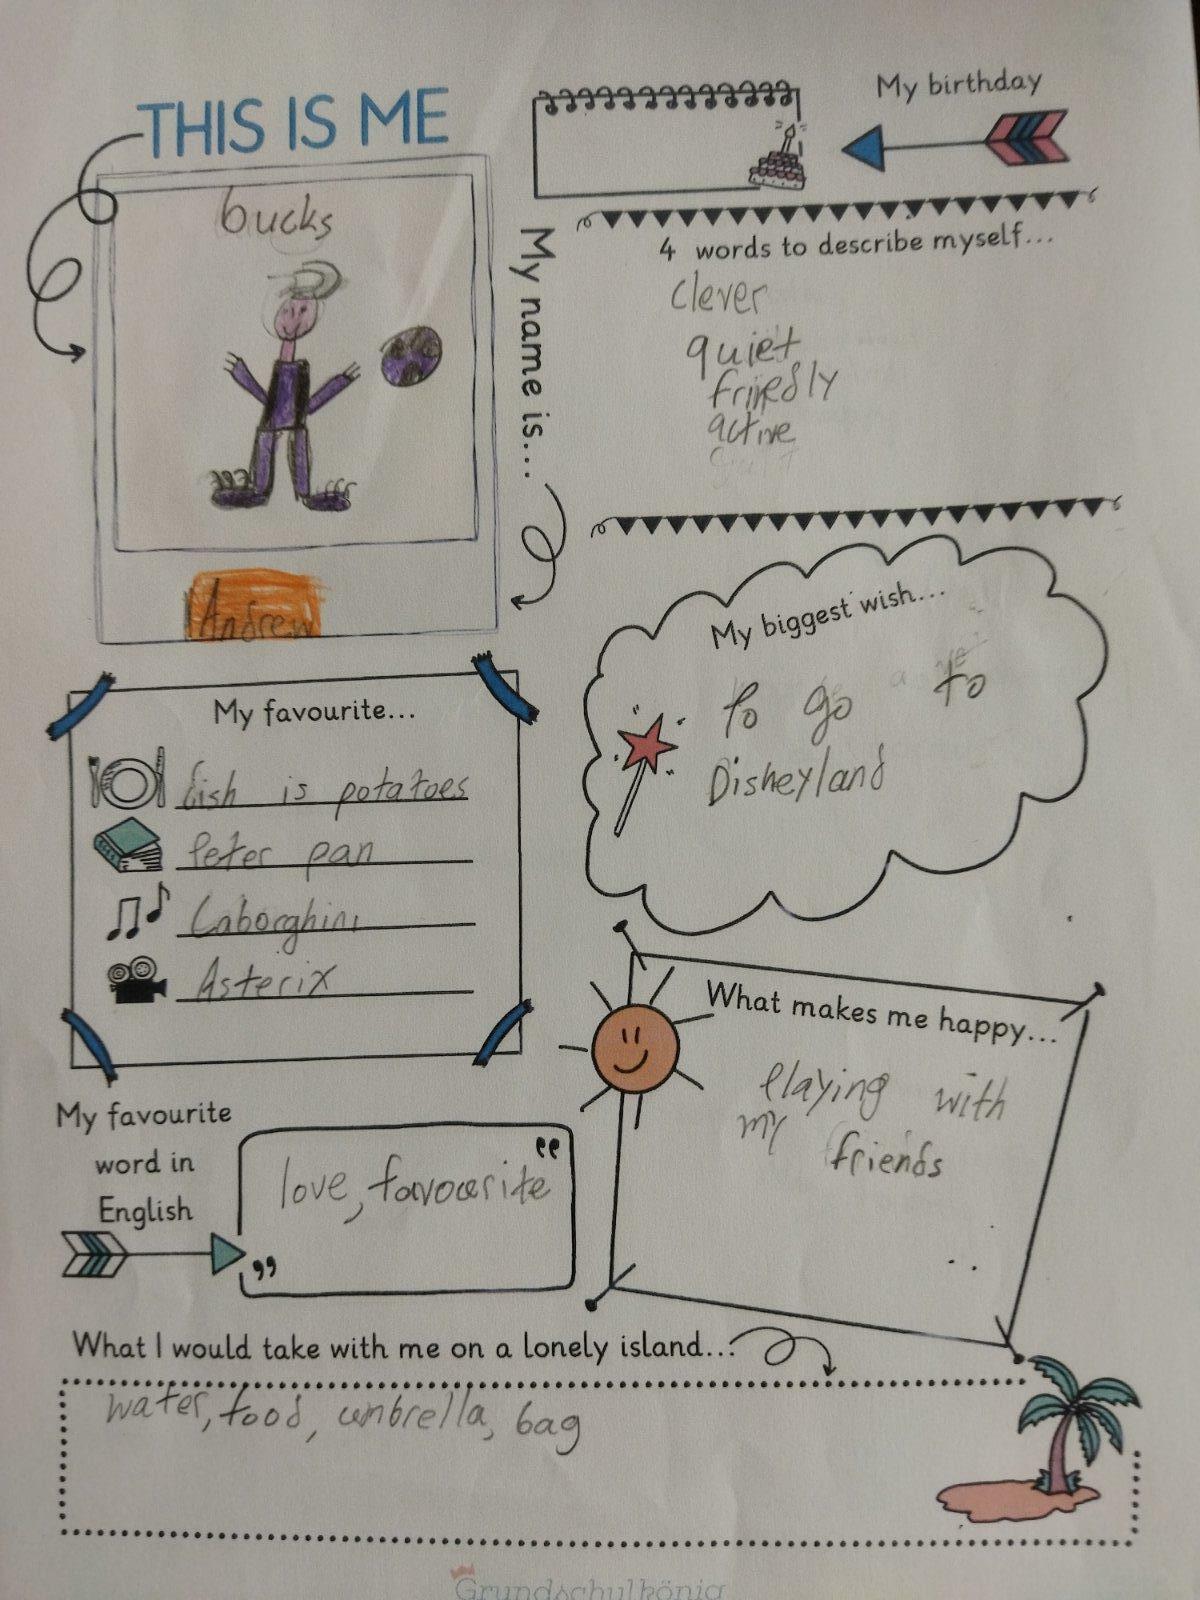 THIS IS ME
bucks
Andrew
My name is....
My birthday
4 words to describe myself...
clever
quiet
active
My biggest wish...
to go to
Disneyland
My favourite...
fish is potatoes
Peter pan
Laborghini
Asterix
What makes me happy...
Playing with
my friends
My favourite
word in
English
love, favourite
What I would take with me on a lonely island...
water, food, umbrella, bag
Grundschulkönig